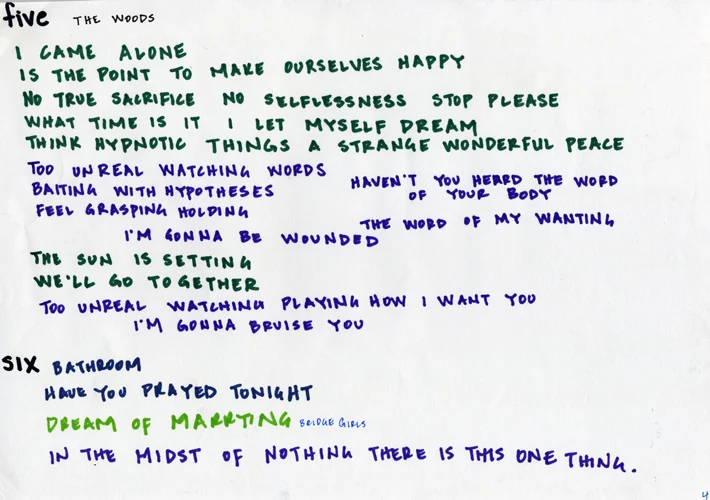 five THE WOODS
I CAME ALONE
IS THE POINT TO MAKE OURSELVES HAPPY
NO TRUE SACRIFICE NO SELFLESSNESS STOP PLEASE
WHAT TIME IS IT I LET MYSELF DREAM
THINK HYPNOTIC THINGS A STRANGE WONDERFUL PEACE
TOO UNREAL WATCHING WORDS
BAITING WITH HYPOTHESES
HAVEN'T YOU HEARD THE WORD
OF YOUR BODY
FEEL GRASPING HOLDING
THE WORD OF MY WANTING
I'M GONNA BE WOUNDED
THE SUN IS SETTING
WE'LL GO TOGETHER
TOO UNREAL WATCHING PLAYING HOW I WANT YOU
I'M GONNA BRUISE YOU
SIX BATHROOM
HAVE YOU PRAYED TONIGHT
DREAM OF MARRYING BRIDGE GIRLS
IN THE MIDST OF NOTHING THERE IS THIS ONE THING.
4